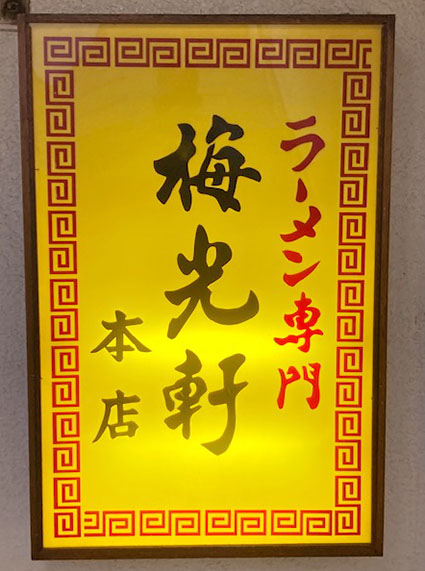 ラーメン専門
梅光軒
本店